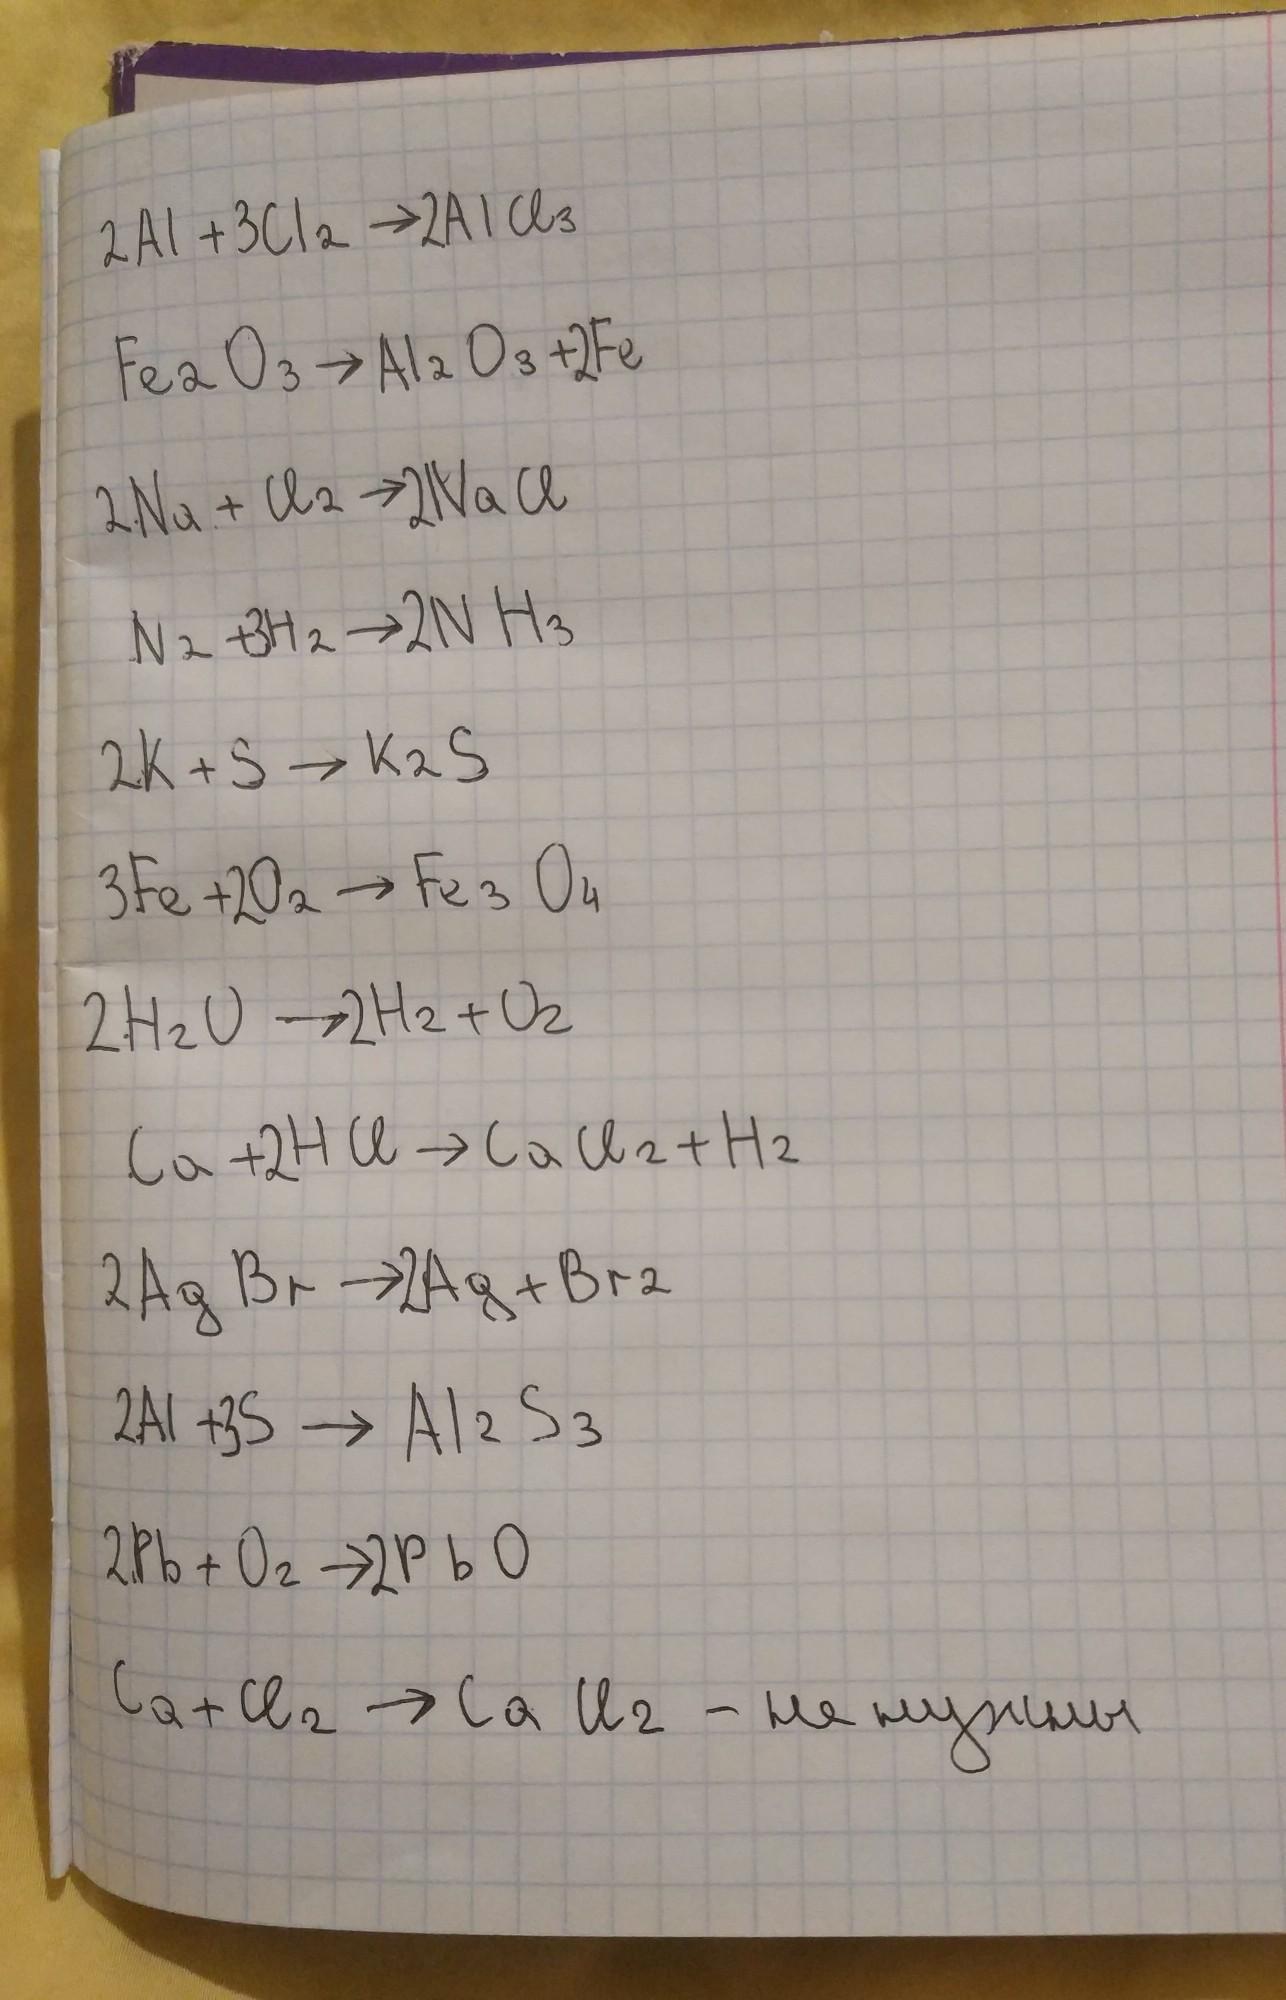 2Al + 3Cl2 → 2AlCl3
Fe2O3 → Al2O3 + 2Fe
2Na + Cl2 → 2NaCl
N2 + 3H2 → 2NH3
2K + S → K2S
3Fe + 2O2 → Fe3O4
2H2O → 2H2 + O2
Ca + 2HCl → CaCl2 + H2
2AgBr → 2Ag + Br2
2Al + 3S → Al2S3
2Pb + O2 → 2PbO
Ca + Cl2 → CaCl2 - не нужны